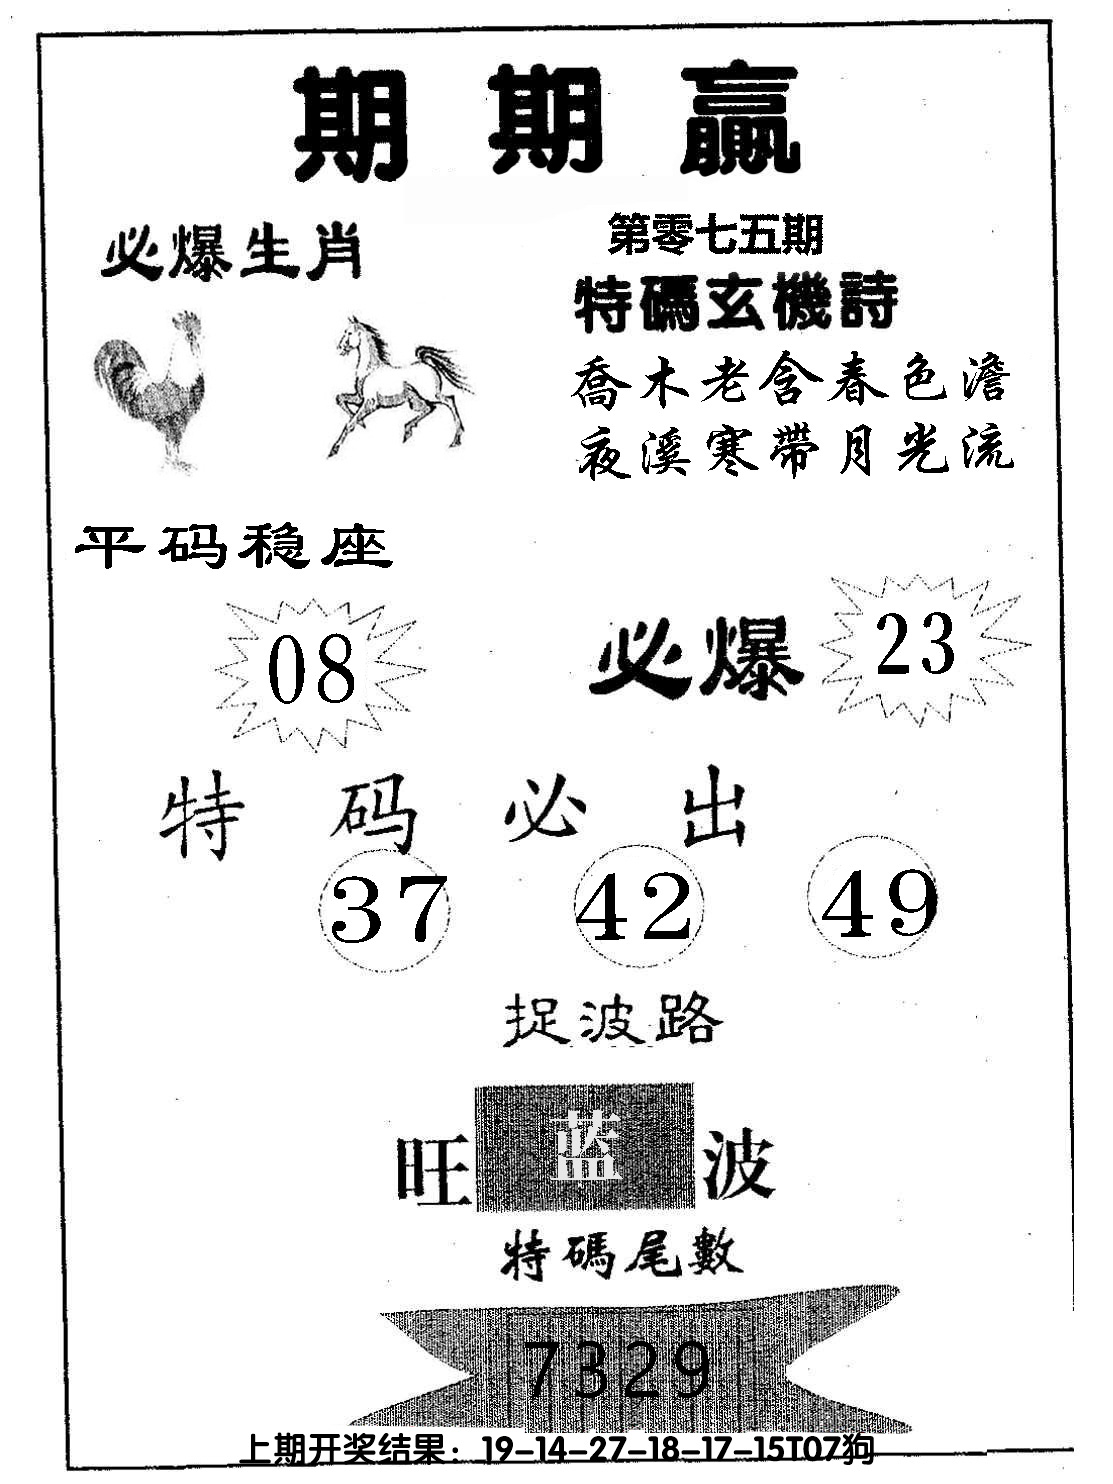 期期贏
必爆生肖
第零七五期
特碼玄機詩
喬木老含春色澹
夜溪寒帶月光流
平码稳座
08
必爆 23
特码必出
37 42 49
捉波路
旺蓝波
特碼尾數
7329
上期开奖结果：19-14-27-18-17-15T07狗